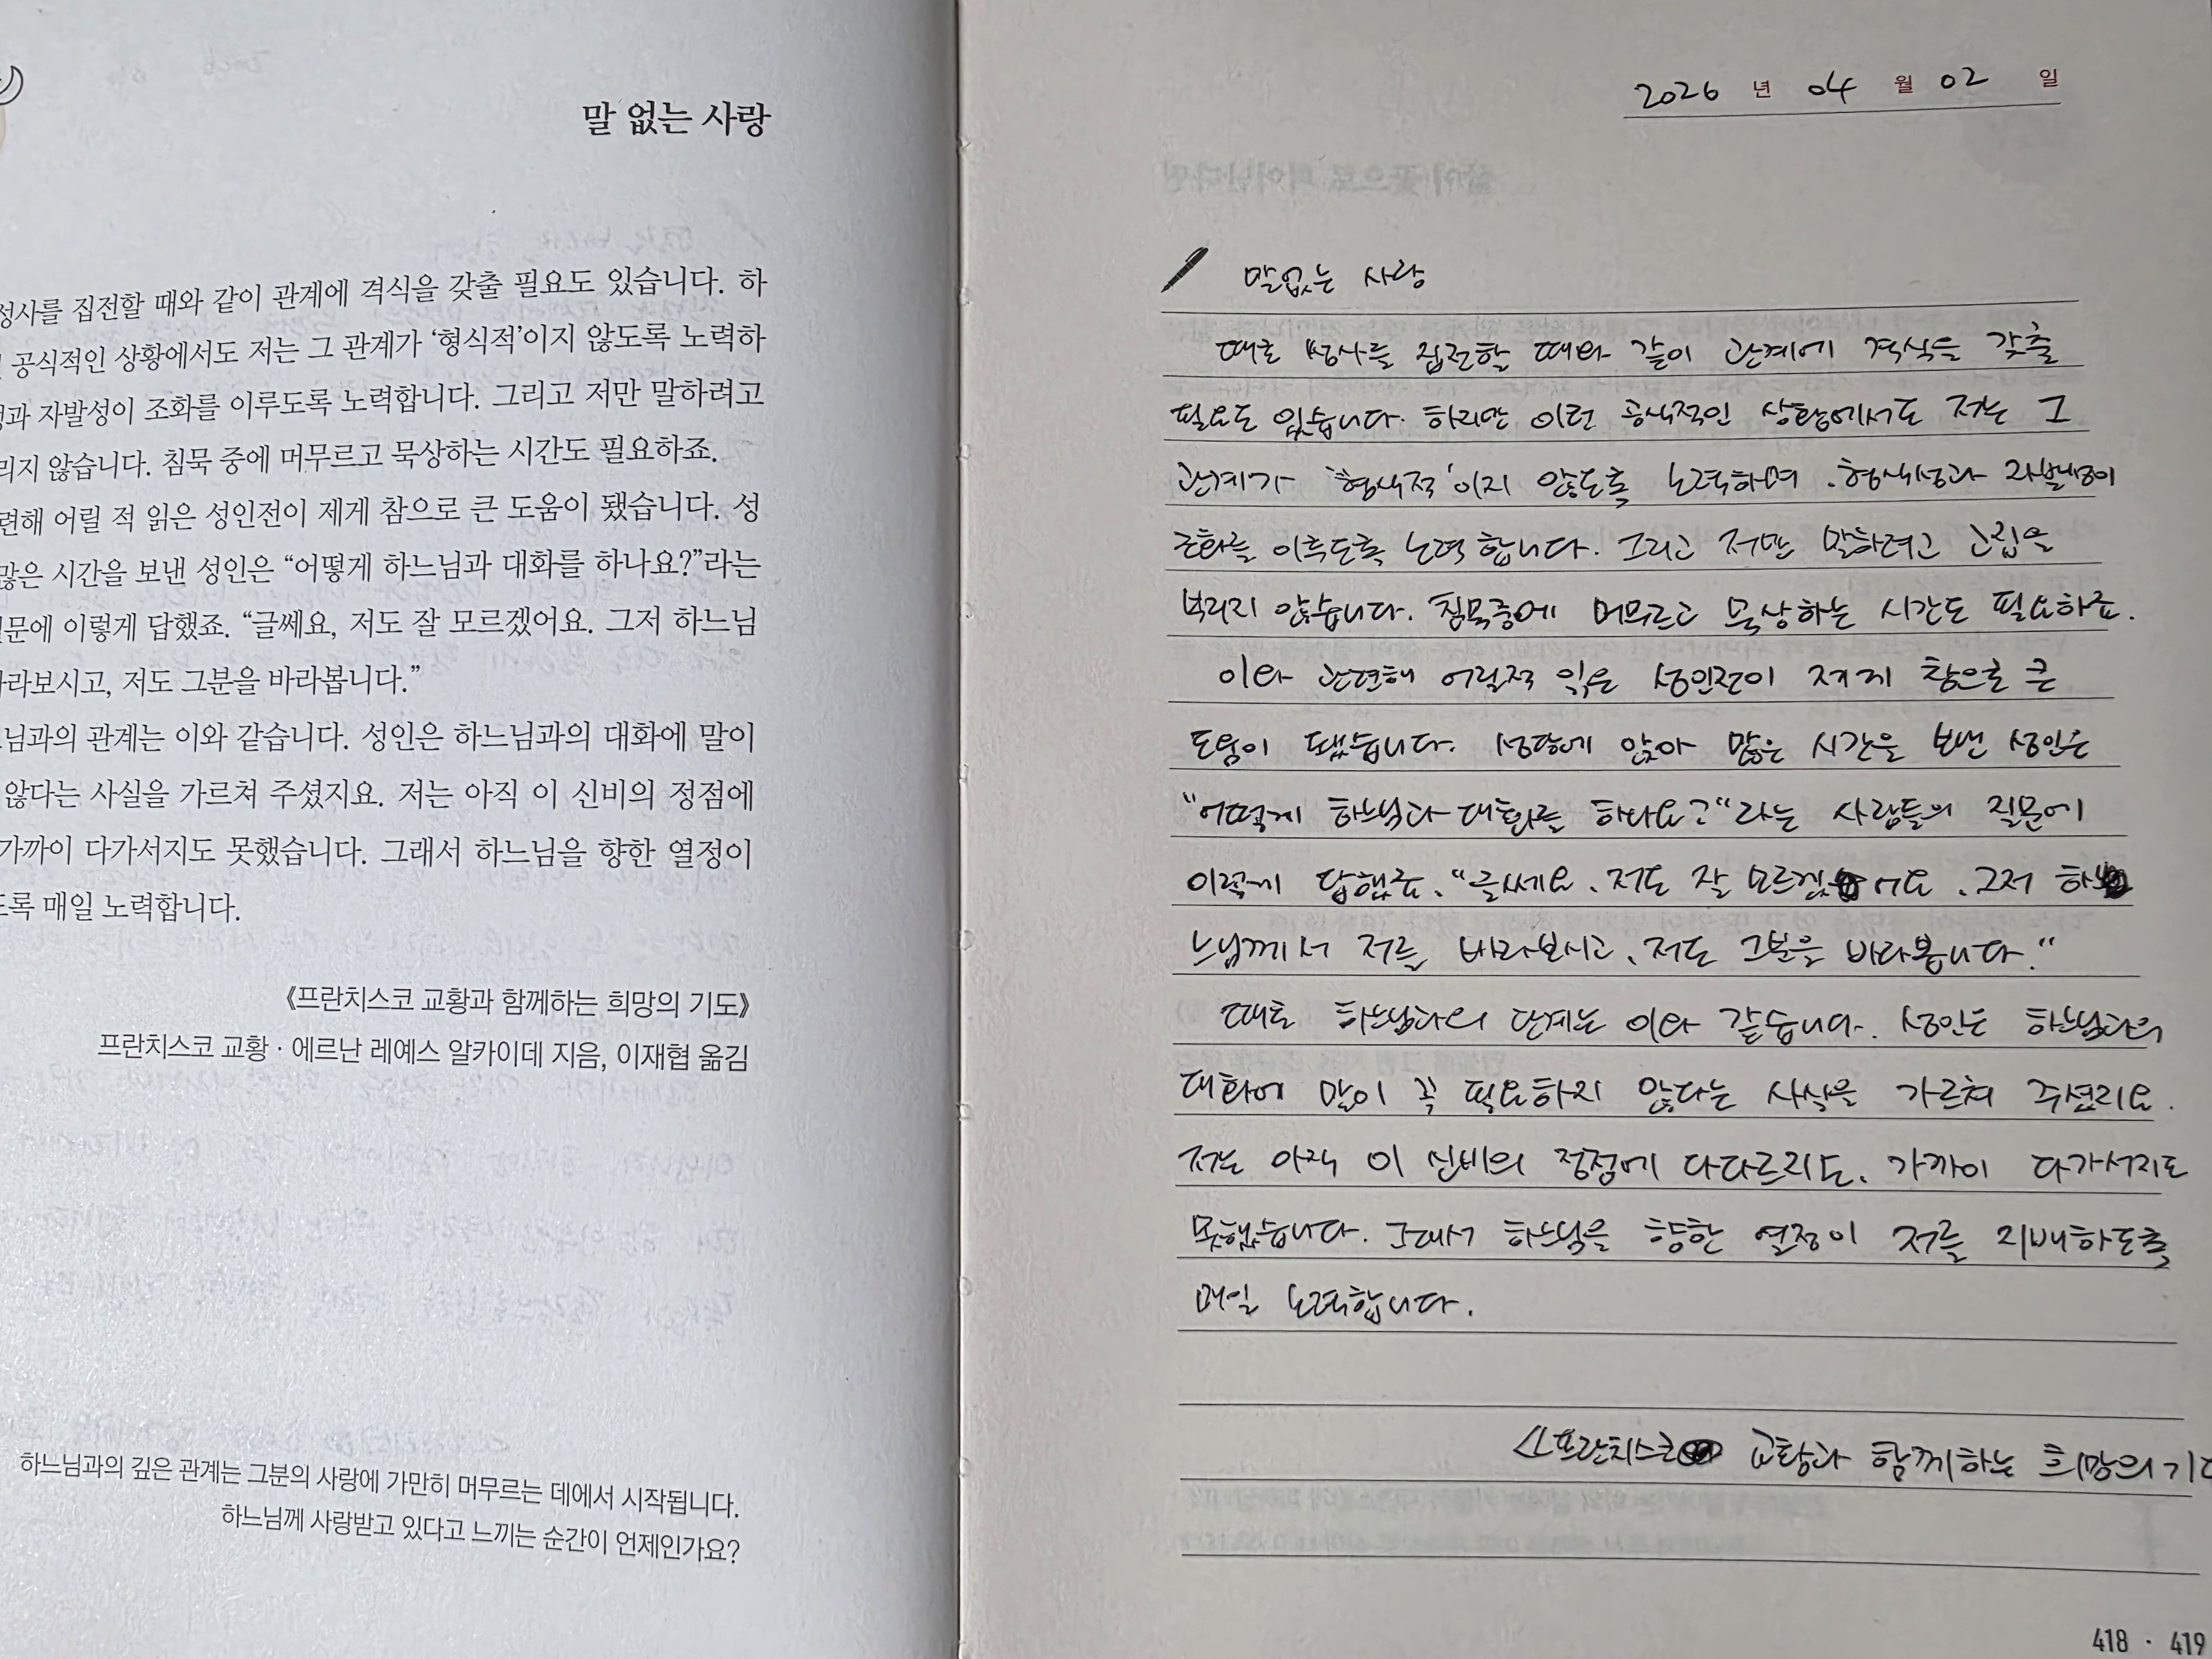 말 없는 사랑
성사를 집전할 때와 같이 관계에 격식을 갖출 필요도 있습니다. 하
공식적인 상황에서도 저는 그 관계가 ‘형식적’이지 않도록 노력하
과 자발성이 조화를 이루도록 노력합니다. 그리고 저만 말하려고
리지 않습니다. 침묵 중에 머무르고 묵상하는 시간도 필요하죠.
련해 어릴 적 읽은 성인전이 제게 참으로 큰 도움이 됐습니다. 성
많은 시간을 보낸 성인은 “어떻게 하느님과 대화를 하나요?”라는
문에 이렇게 답했죠. “글쎄요, 저도 잘 모르겠어요. 그저 하느님
라보시고, 저도 그분을 바라봅니다.”
님과의 관계는 이와 같습니다. 성인은 하느님과의 대화에 말이
않다는 사실을 가르쳐 주셨지요. 저는 아직 이 신비의 정점에
가까이 다가서지도 못했습니다. 그래서 하느님을 향한 열정이
록 매일 노력합니다.
《프란치스코 교황과 함께하는 희망의 기도》
프란치스코 교황 · 에르난 레예스 알카이데 지음, 이재협 옮김
하느님과의 깊은 관계는 그분의 사랑에 가만히 머무르는 데에서 시작됩니다.
하느님께 사랑받고 있다고 느끼는 순간이 언제인가요?
2026 년 04 월 02 일
말없는 사랑
때로 성사를 집전할 때와 같이 관계에 격식을 갖출
필요도 있습니다. 하지만 이런 공식적인 상황에서도 저는 그
관계가 '형식적'이지 않도록 노력하며, 형식성과 자발성이
조화를 이루도록 노력합니다. 그리고 저만 말하려고 고집을
부리지 않습니다. 침묵중에 머무르고 묵상하는 시간도 필요하죠.
이와 관련해 어릴적 읽은 성인전이 제게 참으로 큰
도움이 됐습니다. 성당에 앉아 많은 시간을 보낸 성인은
"어떻게 하느님과 대화를 하나요?"라는 사람들의 질문에
이렇게 답했죠. "글쎄요, 저도 잘 모르겠어요. 그저 하
느님께서 저를 바라보시고, 저도 그분을 바라봅니다."
때로 하느님과의 관계는 이와 같습니다. 성인은 하느님과의
대화에 말이 꼭 필요하지 않다는 사실을 가르쳐 주셨지요.
저는 아직 이 신비의 정점에 다다르지도, 가까이 다가서지도
못했습니다. 그래서 하느님을 향한 열정이 저를 지배하도록
매일 노력합니다.
<프란치스코 교황과 함께하는 희망의 기
418 · 419